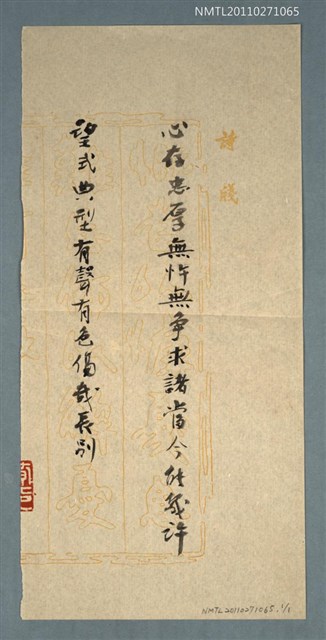 NMTL20110271065
詩箋
心存忠厚無忤無爭求諸當今能幾許
望式典型有聲有色傷哉長別
NMTL20110271065.1/1